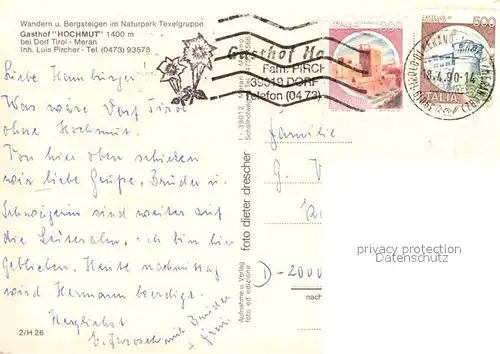 Wandern u. Bergsteigen im Naturpark Texelgruppe
Gasthof "HOCHMUT" 1400 m
bei Dorf Tirol - Meran
Inh. Luis Pircher - Tel. (0473) 93578
Gasthof Ho
Fam. PIRCH
39019 DORF
Telefon (0473)
300
500
ITALIA
18.4.90-14
Liebe Hamburger!
Was wäre Dorf Tirol
ohne Hochmut.
Von hier oben schicken
wir liebe Grüße, Brüder u.
Schwägerin sind weiter auf
die Leiteralm, ich bin hier
geblieben. Heute nachmittag
wird Hermann beerdigt.
Herzlichst
mit Brüder
Familie
G. V
D-2000
foto dieter drescher
Aufnahme u. Verlag
foto ed edizione
nach
privacy protection
Datenschutz
2/H 26